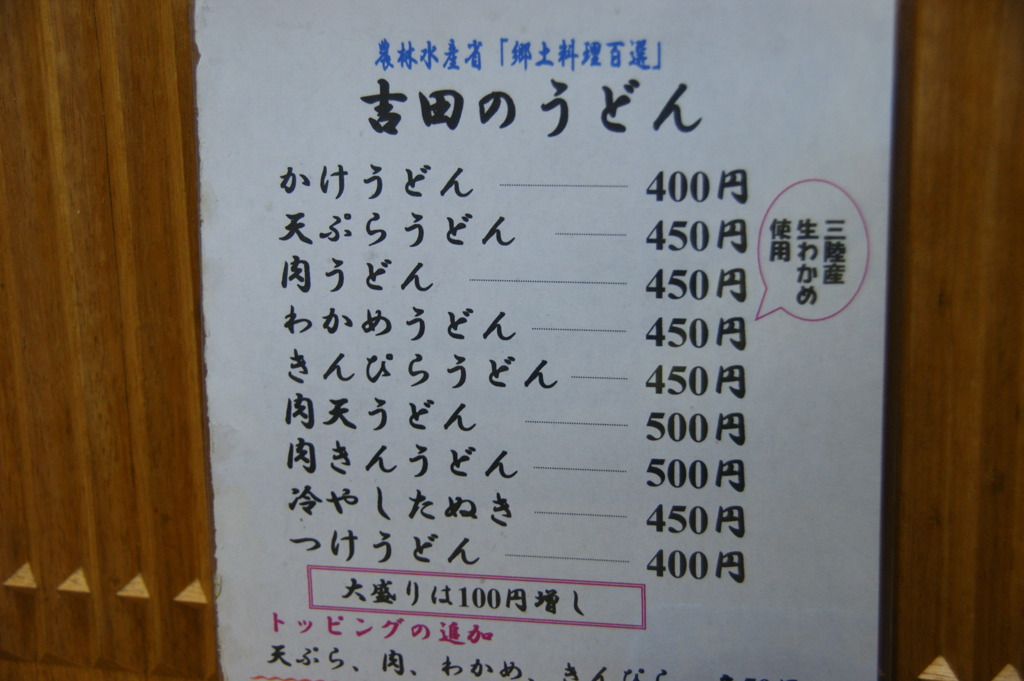 農林水産省「郷土料理百選」
吉田のうどん
かけうどん 400円
天ぷらうどん 450円
肉うどん 450円
わかめうどん 450円
三陸産
生わかめ
使用
きんぴらうどん 450円
肉天うどん 500円
肉きんうどん 500円
冷やしたぬき 450円
つけうどん 400円
大盛りは100円増し
トッピングの追加
天ぷら、肉、わかめ、きんぴら